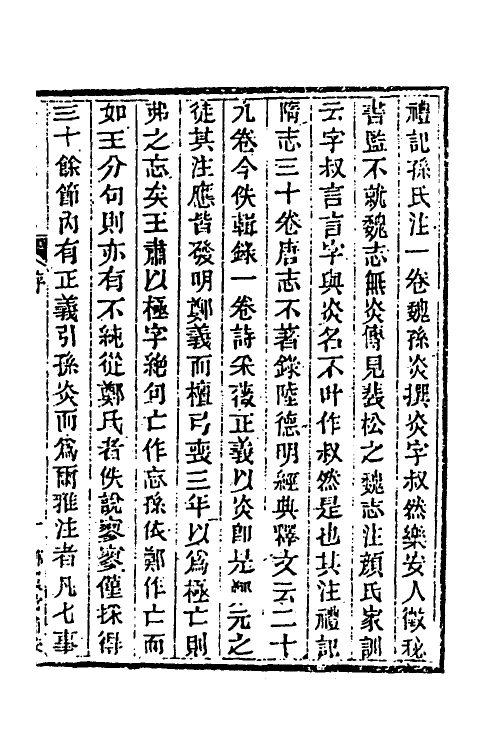 禮記孫氏注一卷魏孫炎撰炎字叔然樂安人徵秘
書監不就魏志無炎傳見裴松之魏志注顔氏家訓
云字叔言言字與炎名不叶作叔然是也其注禮記
隋志三十卷唐志不著錄陸德明經典釋文云二十
九卷今佚輯錄一卷詩采薇正義以炎即是鄭元之
徒其注應皆發明鄭義而檀弓喪三年以爲極亡則
弗之忘矣王肅以極字絶句亡作忘孫依鄭作亡而
如王分句則亦有不純從鄭氏者佚說寥寥僅採得
三十餘節內有正義引孫炎而爲爾雅注者凡七事
序